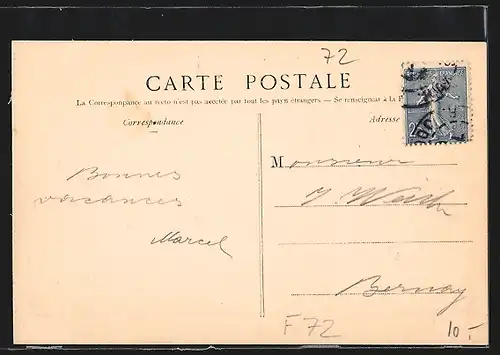 72
CARTE POSTALE
La Correspondance au recto n'est pas acceptée par tous les pays étrangers — Se renseigner à la P
Correspondance
Adresse
Bonnes
vacances
Marcel
Monsieur
Bernay
F72
10.-